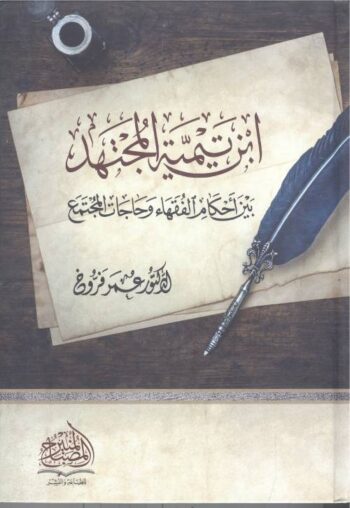 ابن تيمية المجتهد
بين أحكام الفقهاء وحاجات المجتمع
الدكتور عمر فروخ
المصباح المنير
للطباعة والنشر